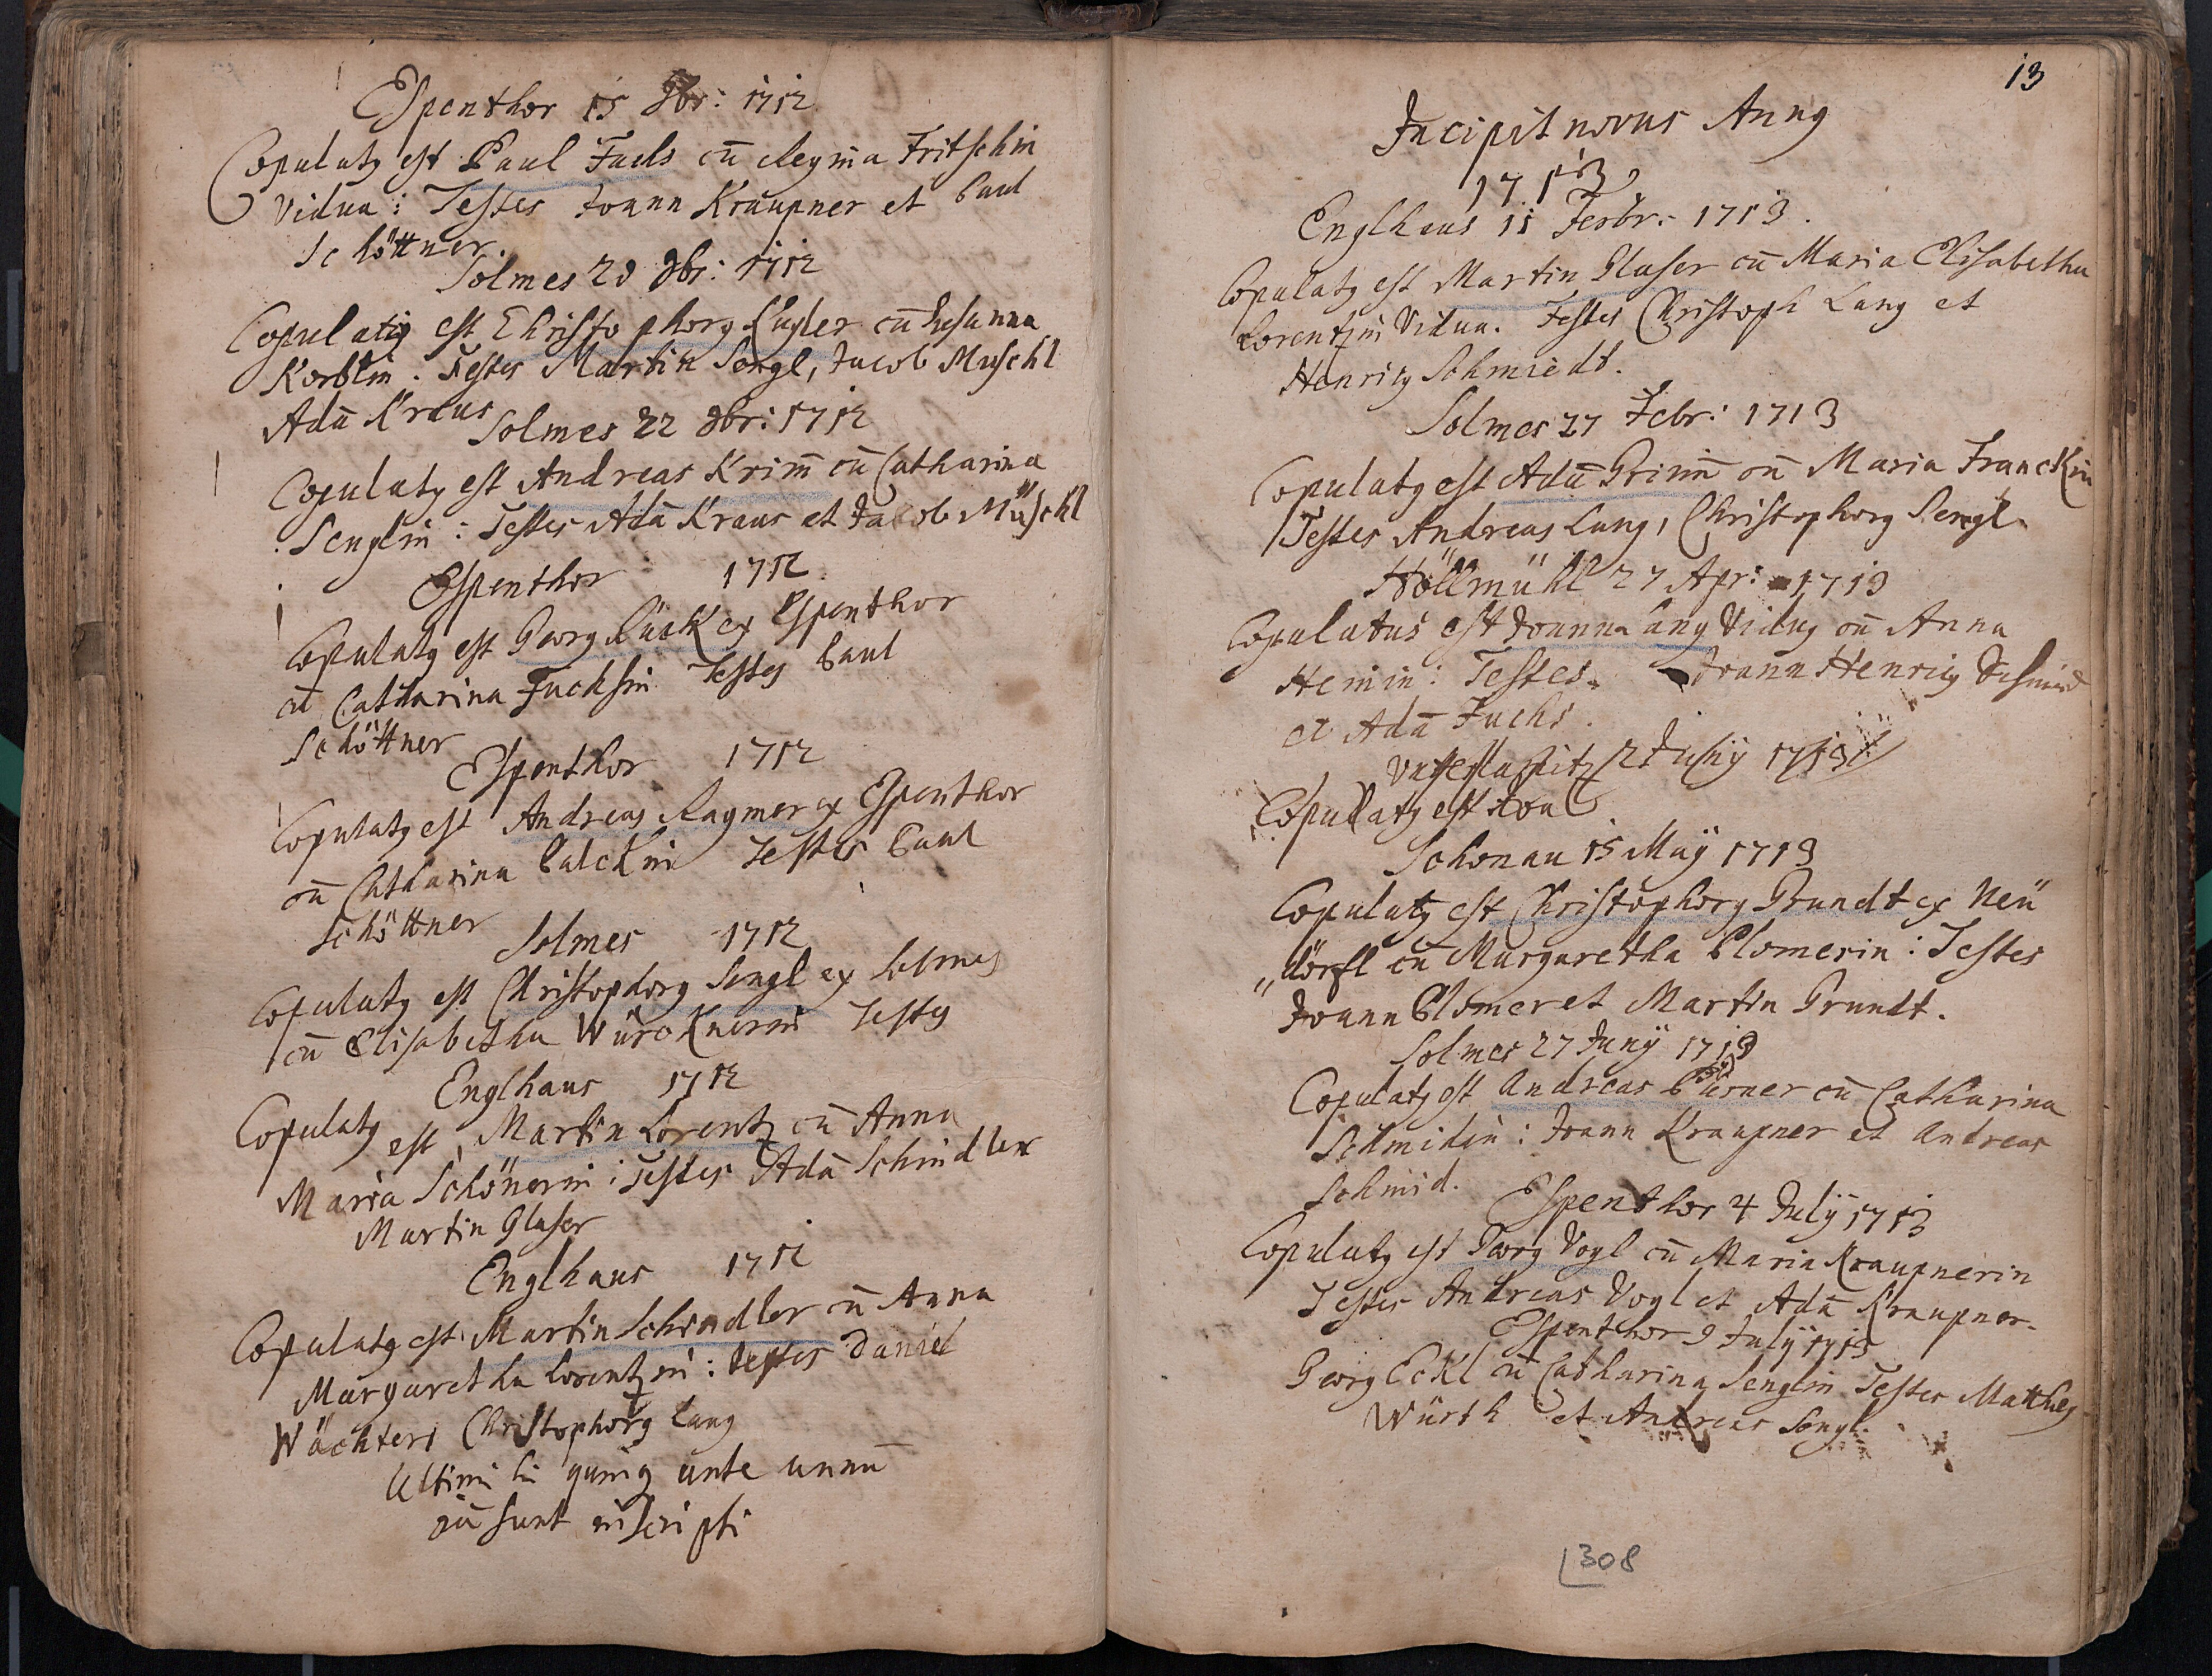 Espenthor 15 9br: 1712
Copulatq est Paul Fuchs cū Regina Fritschin
Vidua: Testes Joann Kraupner et Paul
Schöttner.
Solmes 20 9br: 1712
Copulatq est Christophorq Kugler cū Susanna
Korblin: Testes Martin Sengl, Jacob Muschl
Adā Kraus
Solmes 22 9br: 1712
Copulatq est Andreas Krim̄ cū Catharina
Senglin: Testes Adā Kraus et Jacob Müschl
Espenthor 1712
Copulatq est Georg Rück ex Espenthor
cū Catharina Fuchsin Testes Paul
Schöttner
Espenthor 1712
Copulatq est Andreas Ragmer ex Espenthor
cū Catharina Palckin Testes Paul
Schöttner
Solmes 1712
Copulatq est Christophorq Sengl ex Solmes
cū Elisabetha Würcknerin Testes
Englhaus 1712
Copulatq est Martin Lorentz cū Anna
Maria Schönerin: Testes Adā Schindler
Martin Glaser
Englhaus 1712
Copulatq est Martin Schindler cū Anna
Margaretha Lorentzin: testes Daniel
Wächter, Christophorq Lang
Ultimi hi quinq ante annū
sunt inscripti
13
Incipit novus Annq
1713
Englhaus 11 Febr: 1713.
Copulatq est Martin Glaser cū Maria Elisabetha
Lorentzin Vidua. Testes Christoph Lang et
Henricq Schmiedt.
Solmes 27 Febr: 1713
Copulatq est Adā Grim̄ cū Maria Franckin
Testes Andreas Lang, Christophorq Sengl.
Höllmühl 27 Apr: 1713
Copulatus est Joann Lang Viduq cū Anna
Heinin: Testes. Joann Henricq Schmid
et Adā Fuchs.
2 Julÿ 1713
Copulatq est Joan
Schonau 15 Maÿ 1713
Copulatq est Christophorq Grundt ex Neü
„dörfl cū Margaretha Plomerin: Testes
Joann Plomer et Martin Grundt.
Solmes 27 Junÿ 1713
Copulatq est Andreas cū Catharina
Schmidin: Joann Kraupner et Andreas
Schmid.
Espenthor 4 Julÿ 1713
Copulatq est Georg Vogl cū Maria Kraupnerin
Testes Andreas Vogl et Adā Kraupner.
Espenthor 9 Julÿ 1713
Georg Eckl cū Catharina Senglin Testes Mattheq
Würth et Andreas Sengl.
308